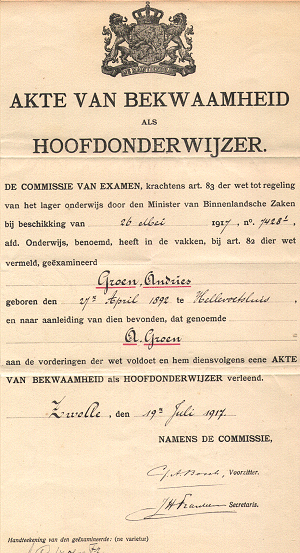 AKTE VAN BEKWAAMHEID
ALS
HOOFDONDERWIJZER.
DE COMMISSIE VAN EXAMEN, krachtens art. 83 der wet tot regeling
van het lager onderwijs door den Minister van Binnenlandsche Zaken
bij beschikking van 26 Mei 1917, no. 7428¹,
afd. Onderwijs, benoemd, heeft in de vakken, bij art. 82 dier wet
vermeld, geëxamineerd
Groen, Andries
geboren den 27n April 1892 te Hellevoetsluis
en naar aanleiding van dien bevonden, dat genoemde
A. Groen
aan de vorderingen der wet voldoet en hem dienvolgens eene AKTE
VAN BEKWAAMHEID als HOOFDONDERWIJZER verleend.
Zwolle, den 19n Juli 1917.
NAMENS DE COMMISSIE,
Voorzitter.
Secretaris.
Handteekening van den geëxamineerde: (ne varietur)